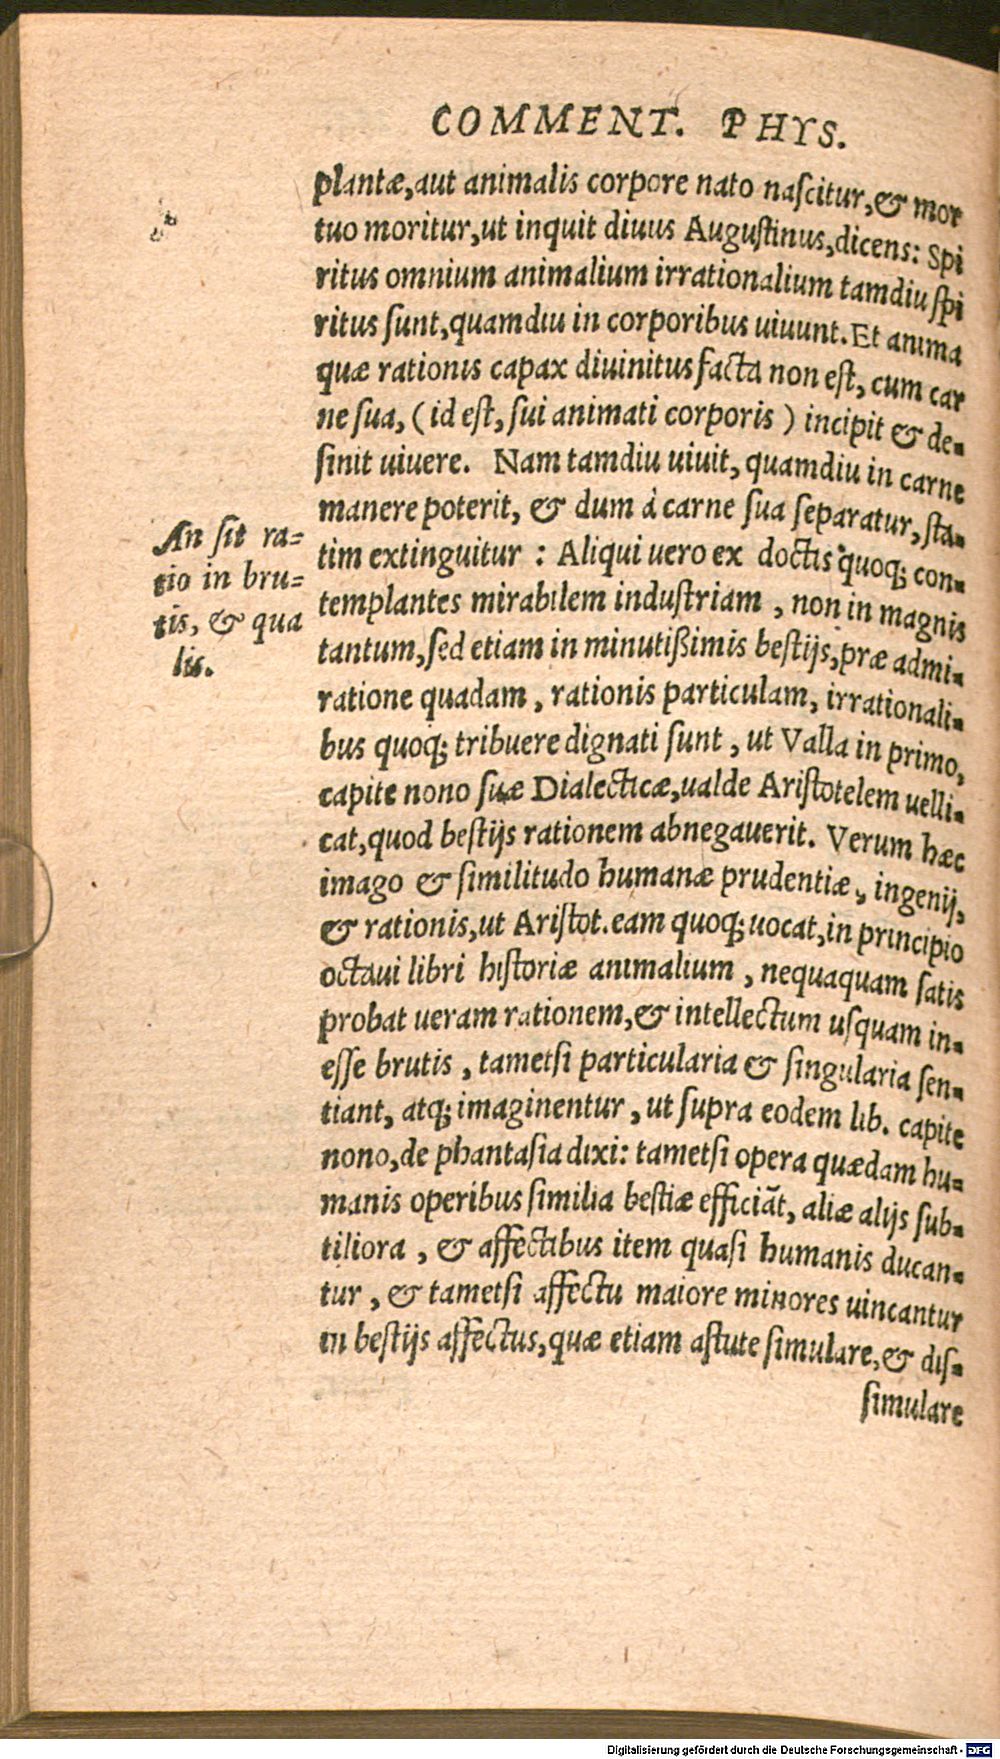 COMMENT. PHYS.
plantæ, aut animalis corpore nato naſcitur, & mor
tuo moritur, ut inquit diuus Auguſtinus, dicens: Spi
ritus omnium animalium irrationalium tamdiu ſpi
ritus ſunt, quamdiu in corporibus uiuunt. Et anima
quæ rationis capax diuinitus facta non eſt, cum car
ne ſua, (id eſt, ſui animati corporis) incipit & de-
ſinit uiuere. Nam tamdiu uiuit, quamdiu in carne
manere poterit, & dum à carne ſua ſeparatur, ſta-
tim extinguitur : Aliqui uero ex doctis quoq; con-
templantes mirabilem induſtriam, non in magnis
tantum, ſed etiam in minutißimis beſtijs, præ admi-
ratione quadam, rationis particulam, irrationali-
bus quoq; tribuere dignati ſunt, ut Valla in primo,
capite nono ſuæ Dialecticæ, ualde Ariſtotelem uelli-
cat, quod beſtijs rationem abnegauerit. Verum hæc
imago & ſimilitudo humanæ prudentiæ, ingenij,
& rationis, ut Ariſtot. eam quoq; uocat, in principio
octaui libri hiſtoriæ animalium, nequaquam ſatis
probat ueram rationem, & intellectum uſquam in-
eſſe brutis, tametſi particularia & ſingularia ſen-
tiant, atq; imaginentur, ut ſupra eodem lib. capite
nono, de phantaſia dixi: tametſi opera quædam hu-
manis operibus ſimilia beſtiæ efficiãt, aliæ alijs ſub-
tiliora, & affectibus item quaſi humanis ducan-
tur, & tametſi affectu maiore minores uincantur
in beſtijs affectus, quæ etiam aſtute ſimulare, & diſ-
ſimulare
An ſit ra-
tio in bru-
tis, & qua
lis.
Digitalisierung gefördert durch die Deutsche Forschungsgemeinschaft - DFG